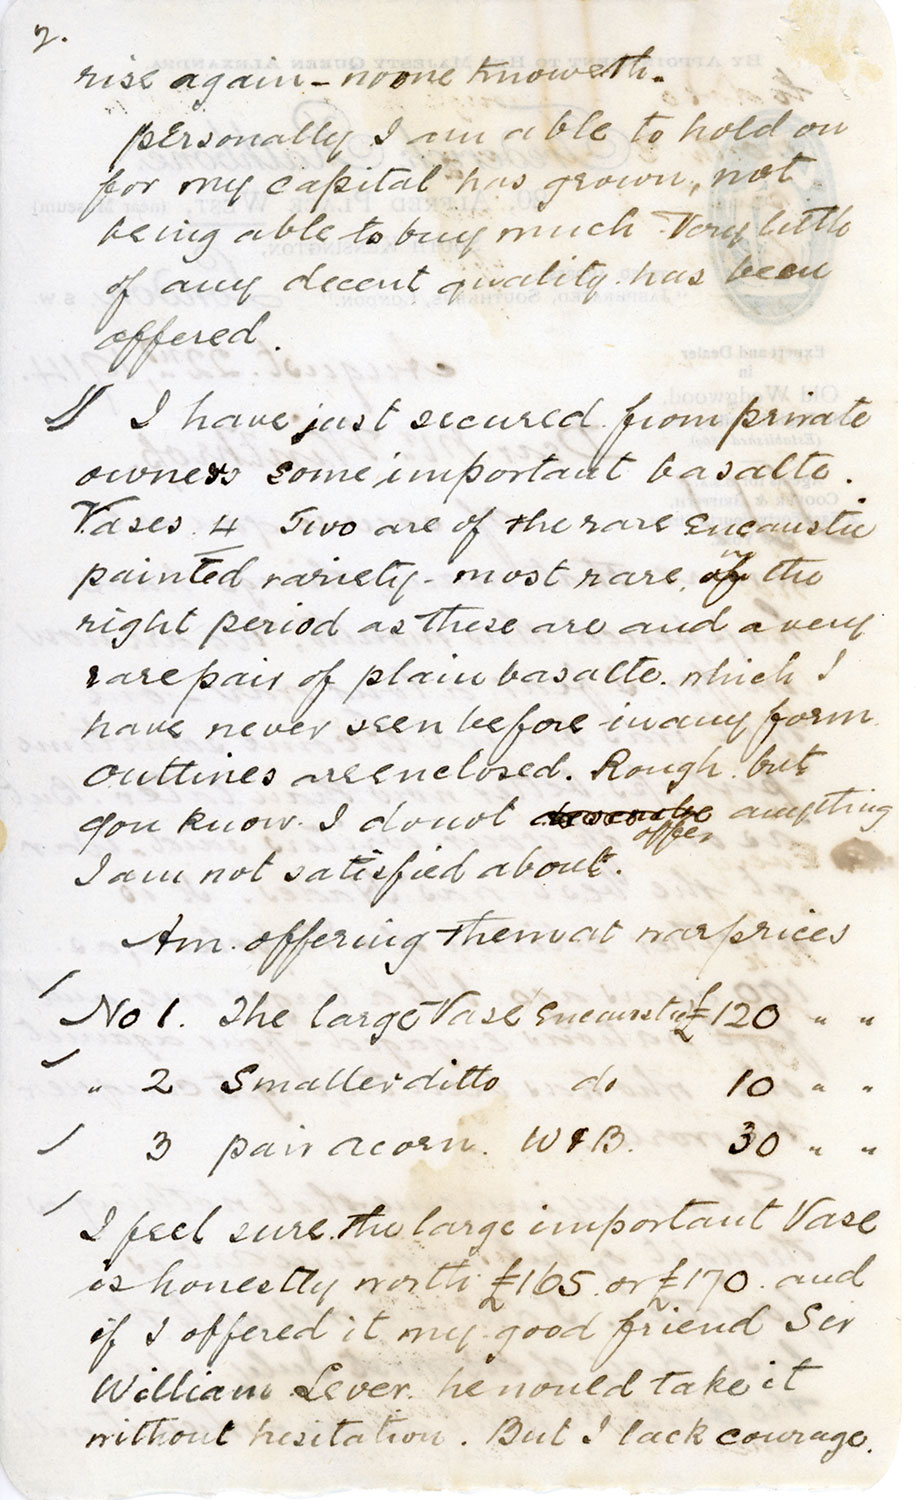 2.
rise again - no one knoweth.
Personally I am able to hold on
for my capital has grown, not
being able to buy much. Very little
of any decent quality has been
offered.
I have just secured from private
owners some important basalte.
Vases. 4 Two are of the rare Encaustic
painted variety - most rare, of the
right period as these are and a very
rare pair of plain basalte. which I
have never seen before in any form.
Outlines are enclosed. Rough. but
you know I do not describe offer anything
I am not satisfied about.
Am. offering them at war prices
No 1. The large Vase Encaustic £120 " "
" 2 Smaller ditto do 10 " "
3 pair acorn. W & B. 30 " "
I feel sure the large important Vase
is honestly worth £165. or £170. and
if I offered it my good friend Sir
William Lever. he would take it
without hesitation. But I lack courage.